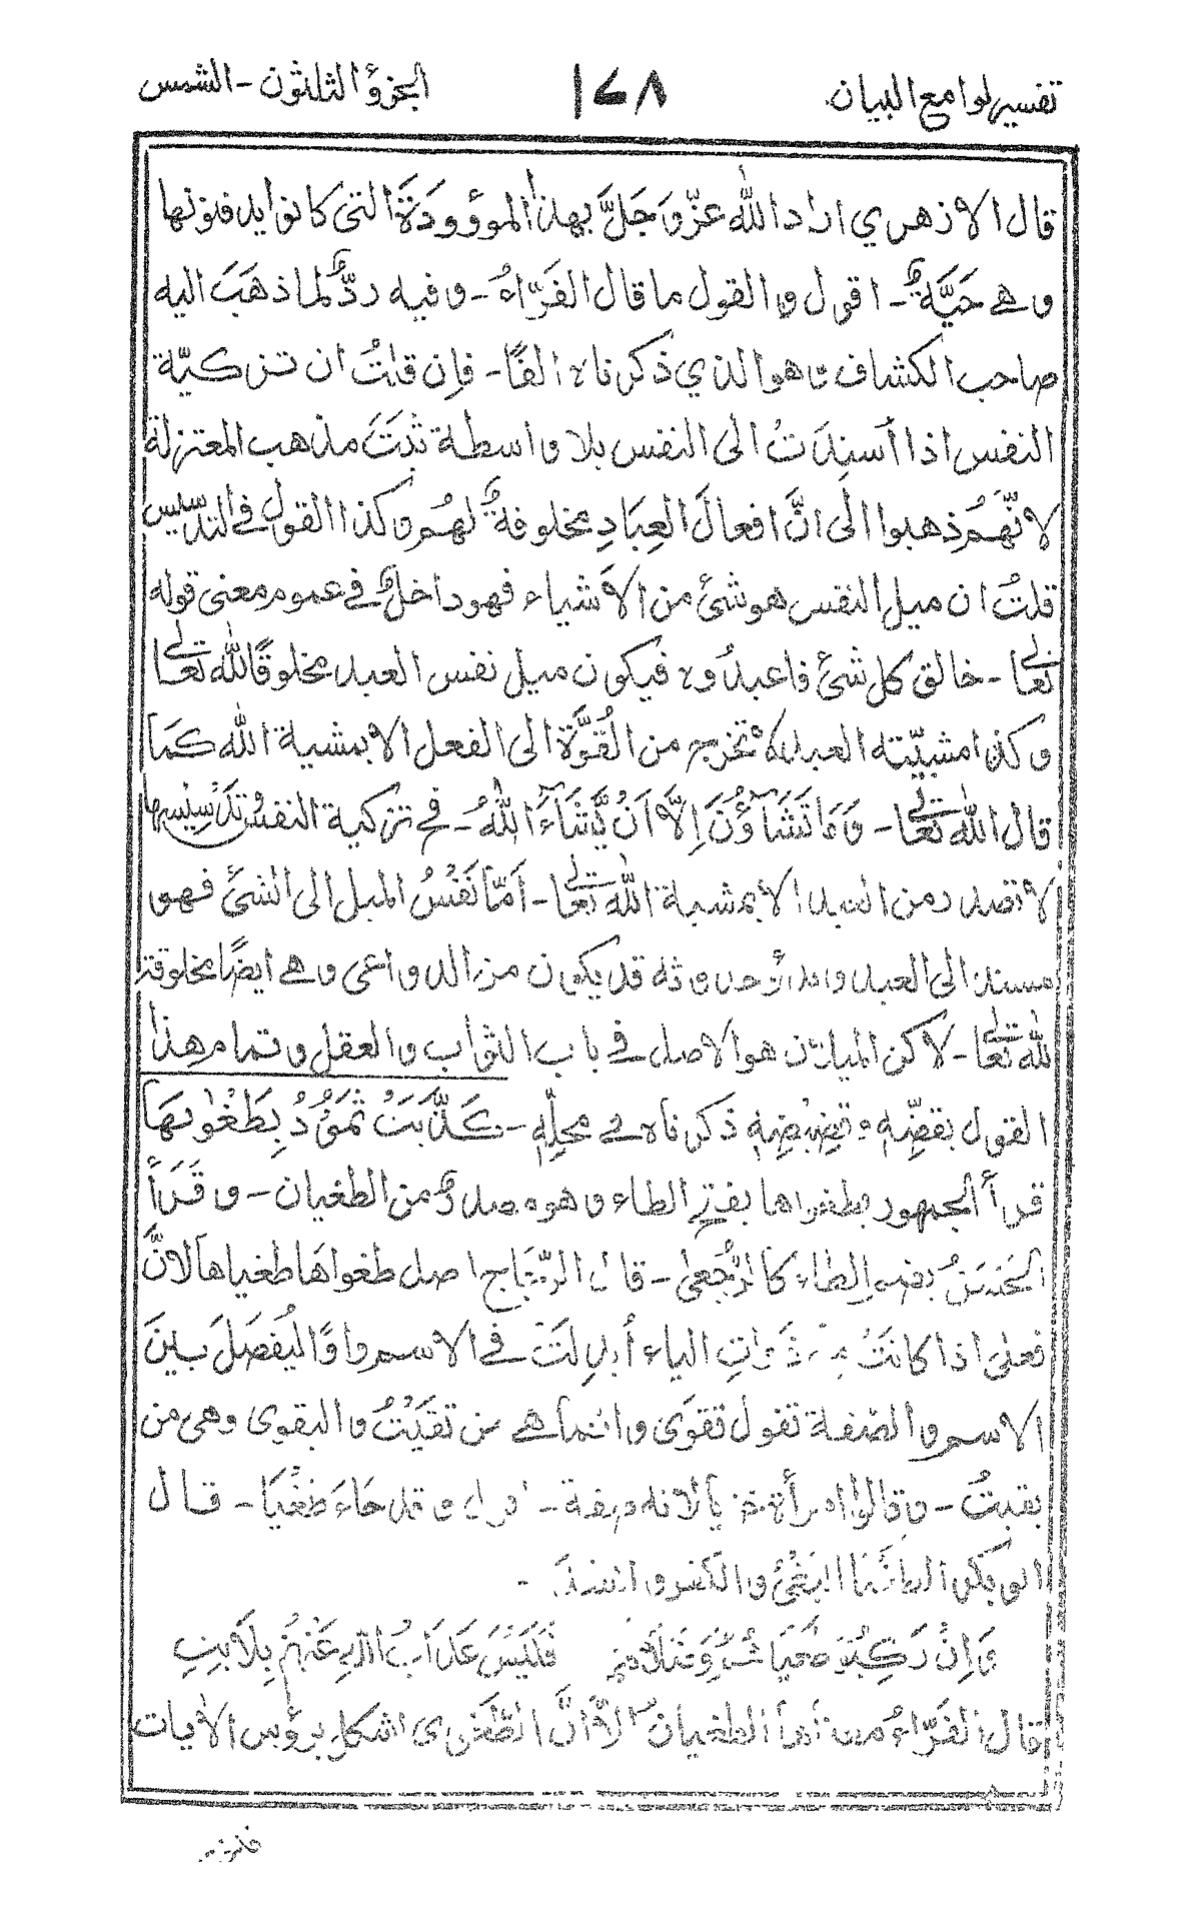 تفسير لوامع البيان ١٧٨ الجزؤ الثلثون - الشمس
قال الازهري اراد الله عزّ وَ جَلَّ بهذا الموؤودَةَ التى كانوا يدفنونها
و هے حَيَّةٌ - اقول و القول ما قال الفَرَّاءُ - و فيه ردٌّ لما ذهَبَ اليه
صاحب الكشاف ما هو الذي ذكرناه الفًا - فإن قلتُ ان تزكيّة
النفس اذا اُسنِدَتُ الى النفس بلا واسطة ثبتَتَ مذهب المعتزلة
لانّهُم ذهبوا الى انَّ افعالَ العِبَادِ مخلوقةٌ لهُم و كذا القول فے التدسيس
قلتُ ان ميل النفس هو شئ من الاَشياء فهو داخلٌ فے عموم معنى قوله
تعالٰى - خالق كل شئ فاعبدُوه فيكون ميل نفس العبد مخلوقًا لله تعالٰى
و كذا مشيّته العبد لا تخرج من القُوَّة الى الفعل الا بمشية الله كَمَا
قال الله تعالٰى - وَمَا تَشَآؤُنَ اِلَّا اَنْ يَّشَآءَ اللهُ - فے تزكية النفس تَدْسِيْسِهَا
لا تصدر من العبد الا بمشية الله تعالٰى - اَمّا نَفْسُ الميل الى الشئ فهو
مسند الى العبد قد يكون من الدواعى و هے ايضًا مخلوقة
لله تعالٰى - لاكن الميلان هو الاصل فے باب الثواب و العقل و تمام هذا
القول بقضِّهٖ و قضيضِهٖ ذكرناه فے محلِّهٖ - كَذَّبَتْ ثَمُوْدُ بِطَغْوٰىهَا
قرأ الجمهور بطغواها بفتح الطاء و هو مصدرٌ من الطغيان - و قَرَأَ
الحَسَنُ بضم الطاء كالرُّجعى - قال الزّجّاج اصل طغواهَا طغياها لانَّ
فعلى اذا كانَتْ من ذَوَاتِ الياء أبدِلَتْ فے الاسم واوًا ليُفصَلَ بينَ
الاسم و الصّفة تقول تقوَى و انما هے من تقَيْتُ و البقوى وهى من
بقيتُ - و قالوا امرأة خزيا لانه صفة - و قد جَاءَ طغْيَا - قال
وَ اِنْ رَكِبُوْا طُغْيَا
فَلَيْسَ عَذَابُ عَنْهُمْ بِلَابِثِ
قال الفَرّاءُ الطغيان الّا اَنَّ الطّغوى اشكل برؤس الاٰيات